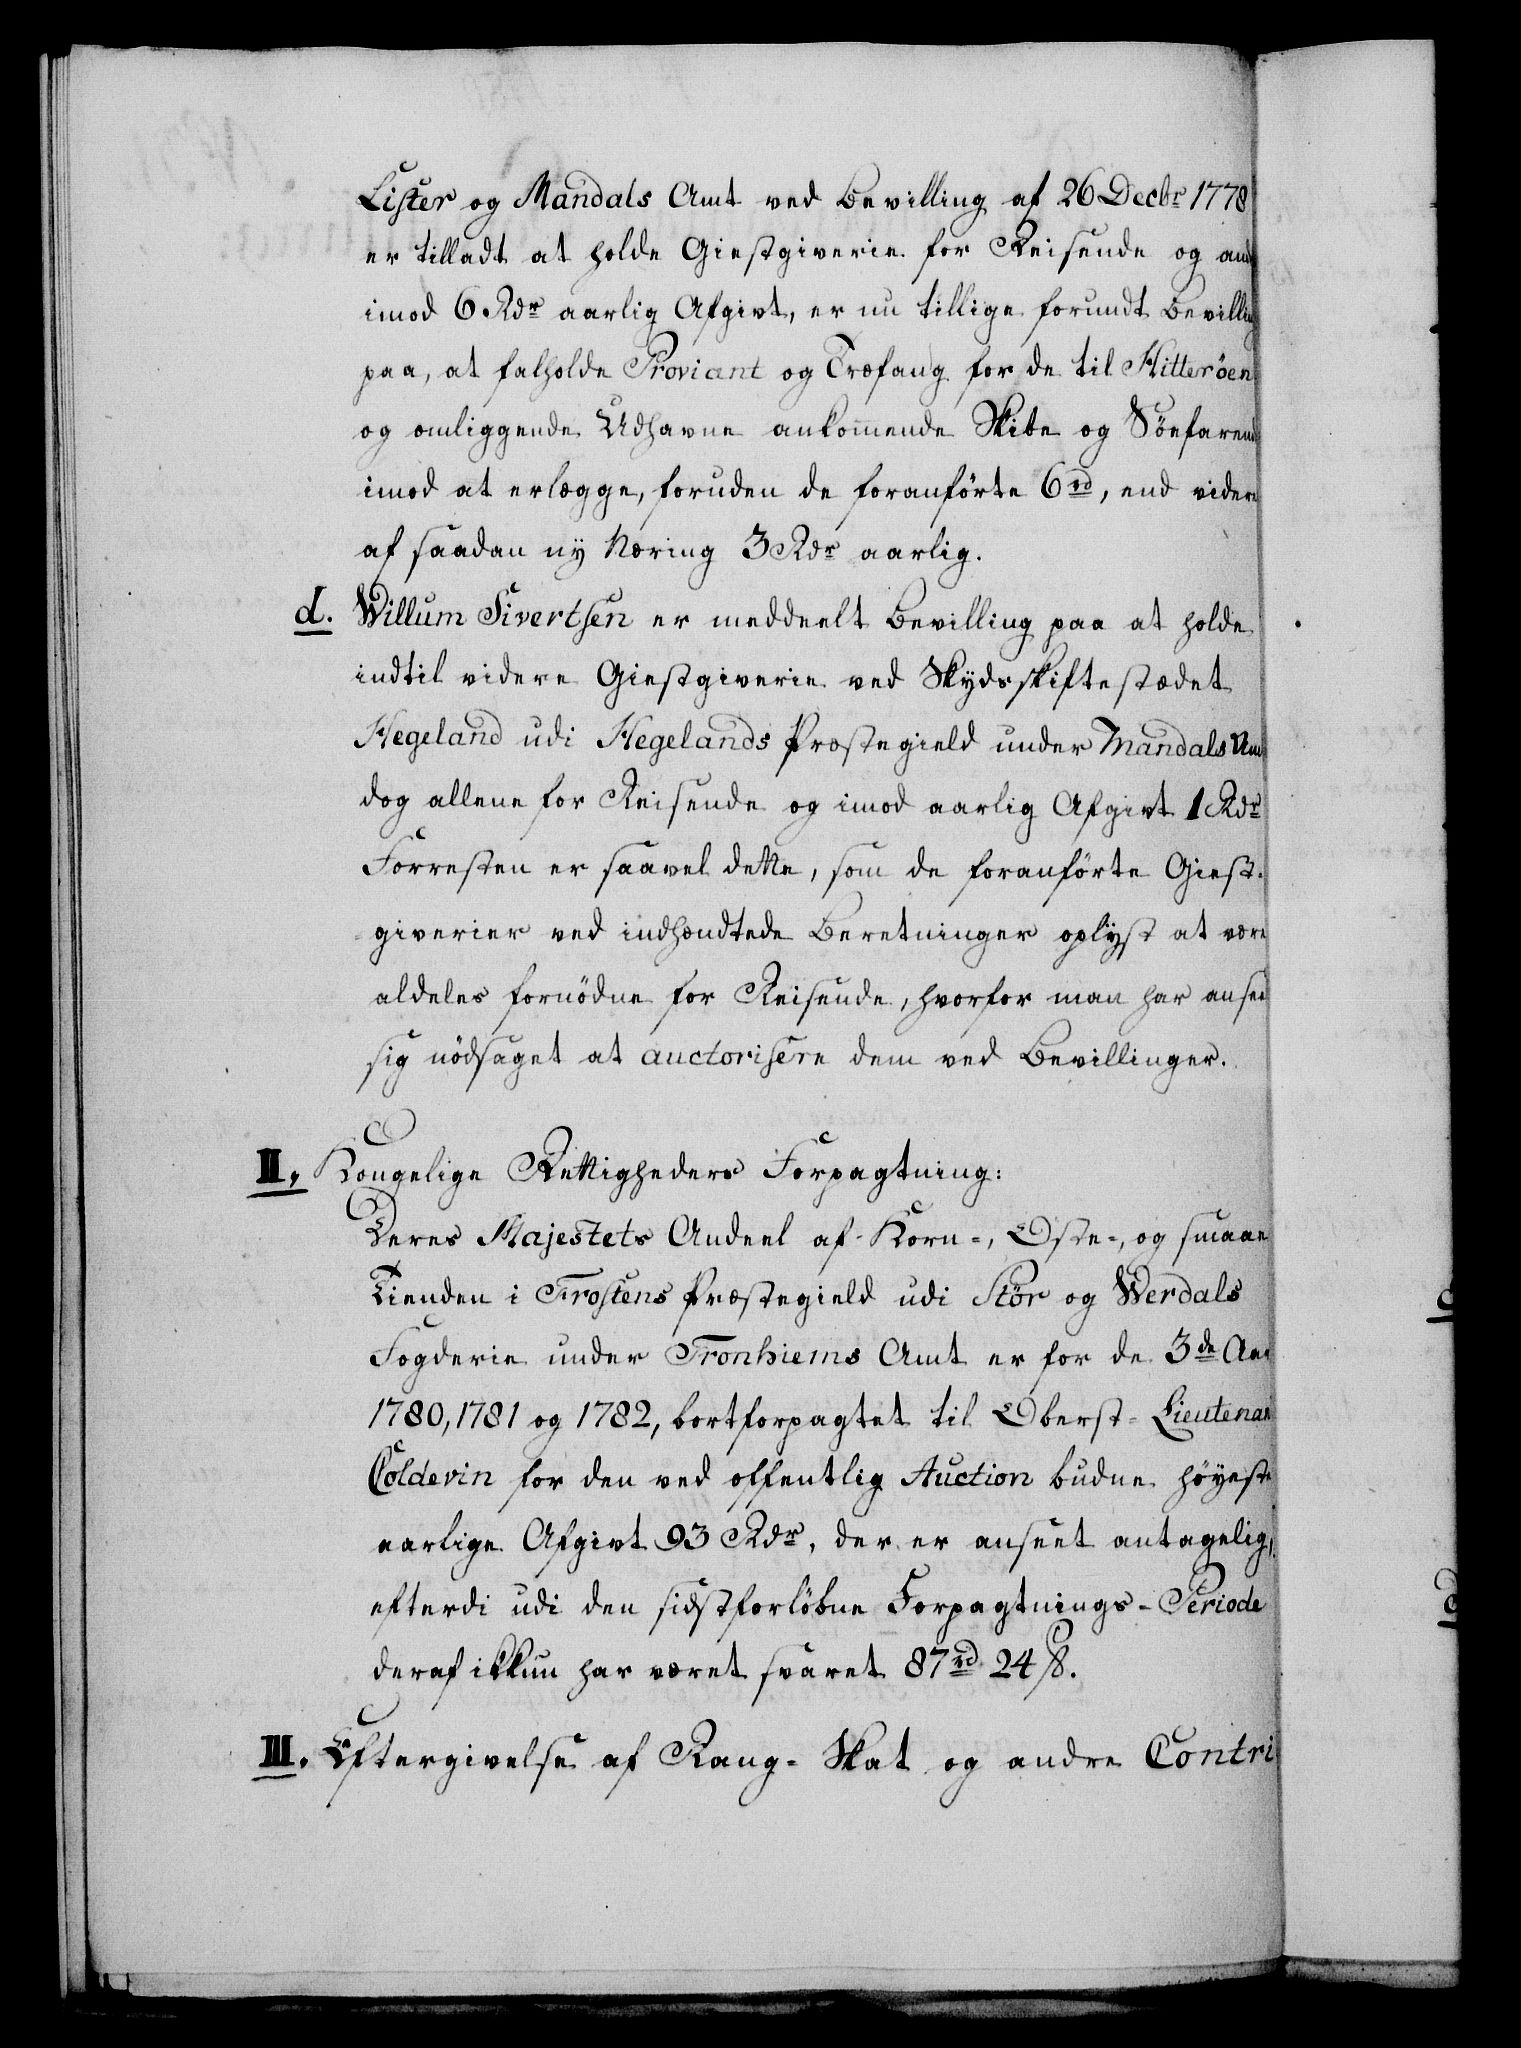 Lister og Mandals Amt ved Bevilling af 26 Decbr 1778
er tilladt at holde Giestgiverie for Reisende og and
imod 6 Rdr aarlig Afgivt, er nu tillige forundt Bevilling
paa, at falholde Proviant og Træfang for de til Hitterøen
og omliggende Udhavne ankommende Skibe og Söefarend
imod at erlægge, foruden de foranførte 6 rd, end videre
af saadan ny Næring 3 Rdr aarlig.
d. Willum Sivertsen er meddeelt Bevilling paa at holde
indtil videre Giestgiverie ved Skydsskiftestædet
Hegeland udi Hegelands Præstegield under Mandals Am
dog allene for Reisende og imod aarlig Afgivt 1 Rdr
Forresten er saavel dette, som de foranførte Giest-
giverier ved indhændtede Beretninger oplyst at være
aldeles fornödne for Reisende, hvorfor man har anseet
sig nödsaget at auctorisere dem ved Bevillinger.
II. Kongelige Rettigheders Forpagtning:
Deres Majestets Andeel af Korn-, Oste-, og smaae
Tienden i Frostens Præstegield udi Stör og Werdals
Fogderie under Tronhiems Amt er for de 3de Aar
1780, 1781 og 1782, bortforpagtet til Oberst-Lieutenan
Coldevin for den ved offentlig Auction budne höyeste
aarlige Afgivt 93 Rdr, der er anseet antagelig,
efterdi udi den sidstforløbne Forpagtnings-Periode
deraf ikkun har været svaret 87 rd 24 ß.
III. Eftergivelse af Rang-Skat og andre Contri